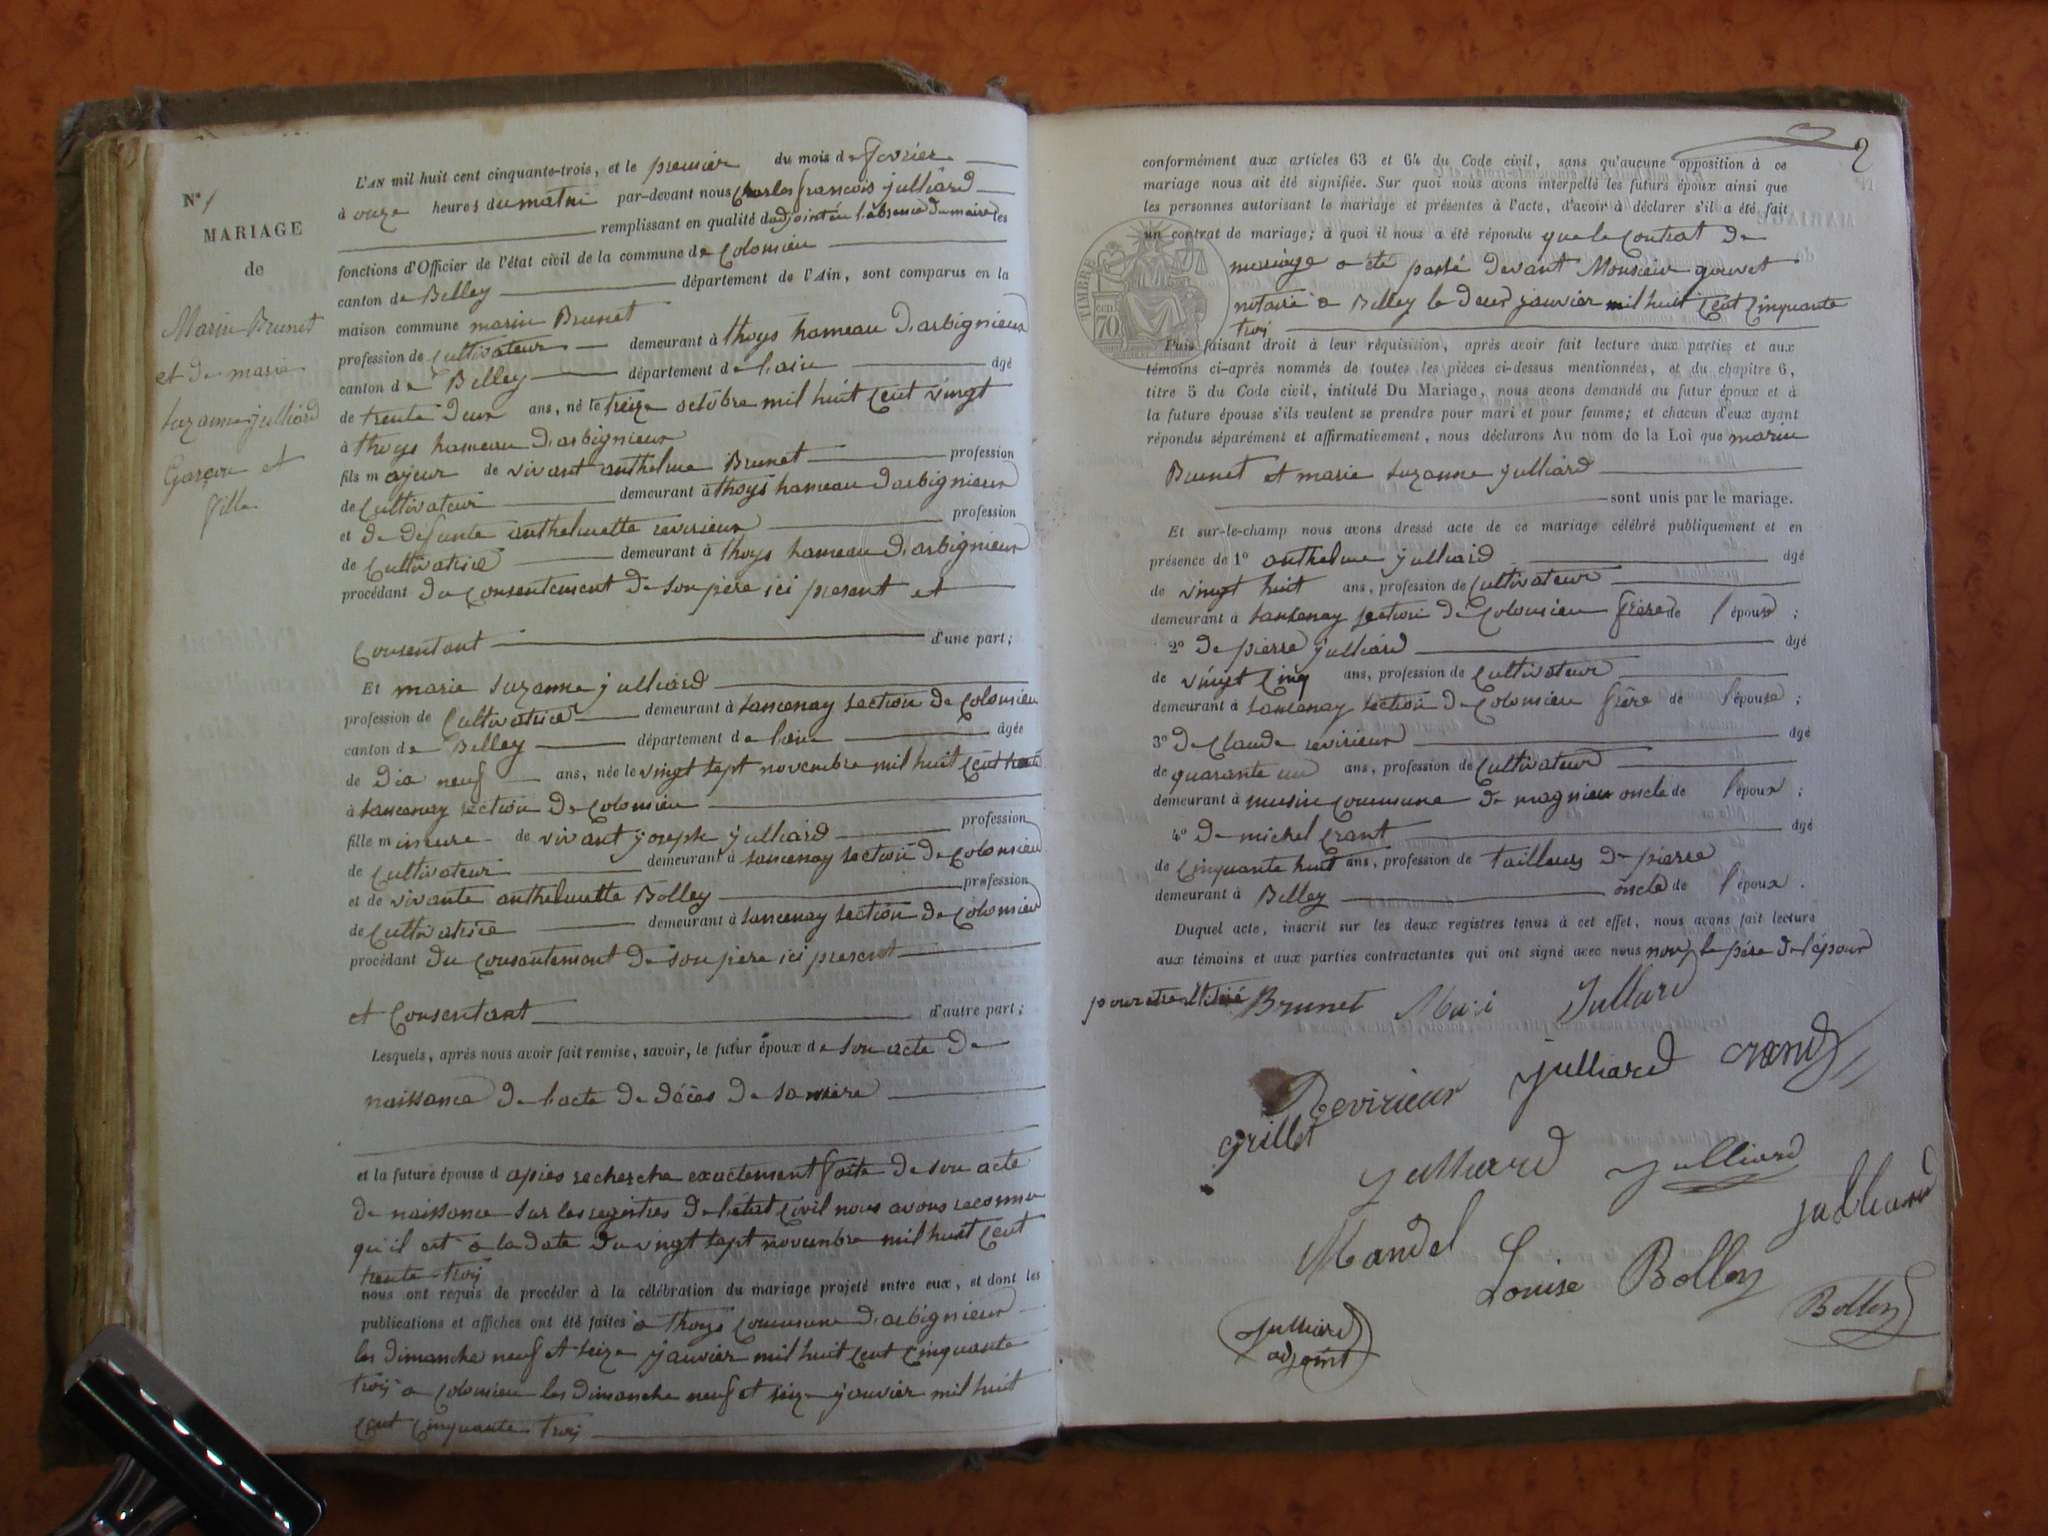 N° 1
MARIAGE
de
Marin Brunet
et de marie
suzanne julliard
Garçon et
fille
L'AN mil huit cent cinquante-trois, et le premier du mois de fevrier
à onze heures du matin par-devant nous Charles françois julliard
remplissant en qualité d'adjoint en l'absence du maire les
fonctions d'Officier de l'état civil de la commune de Colomieu
canton de Belley département de l'Ain, sont comparus en la
maison commune marin Brunet
profession de Cultivateur demeurant à thoys hameau d'arbignieux
canton de Belley département de l'ain âgé
de trente deux ans, né le treize octobre mil huit cent vingt
à thoys hameau d'arbignieux
fils majeur de vivant anthelme Brunet profession
de Cultivateur demeurant à thoys hameau d'arbignieux
et de defunte anthelmette revirieux profession
de Cultivatrice demeurant à thoys hameau d'arbignieux
procédant du Consentement de son père ici present et
Consentant d'une part;
Et marie suzanne julliard
profession de Cultivatrice demeurant à sancenay section de Colomieu
canton de Belley département de l'ain âgée
de dix neuf ans, née le vingt sept novembre mil huit cent
à sancenay section de Colomieu
fille mineure de vivant joseph julliard profession
de Cultivateur demeurant à sancenay section de Colomieu
et de vivante anthelmette Bolley profession
de Cultivatrice demeurant à sancenay section de Colomieu
procédant du Consentement de son père ici present
et Consentant d'autre part;
Lesquels, après nous avoir fait remise, savoir, le futur époux de son acte de
naissance de l'acte de décès de sa mère
et la future épouse d apres recherche exactement faite de son acte
de naissance sur les registres de l'état Civil nous avons reconnu
qu'il est a la date du vingt sept novembre mil huit cent
trente trois
nous ont requis de procéder à la célébration du mariage projeté entre eux, et dont les
publications et affiches ont été faites a thoys Commune d'arbignieux
les dimanche neuf et seize janvier mil huit cent cinquante
trois a Colomieu les dimanche neuf et seize janvier mil huit
cent cinquante trois
2
conformément aux articles 63 et 64 du Code civil, sans qu'aucune opposition à ce
mariage nous ait été signifiée. Sur quoi nous avons interpellé les futurs époux ainsi que
les personnes autorisant le mariage et présentes à l'acte, d'avoir à déclarer s'il a été fait
un contrat de mariage; à quoi il nous a été répondu que le Contrat de
mariage a été passé devant Monsieur gouvet
notaire a Belley le deux janvier mil huit cent cinquante
trois
TIMBRE
70
Puis faisant droit à leur réquisition, après avoir fait lecture aux parties et aux
témoins ci-après nommés de toutes les pièces ci-dessus mentionnées, et du chapitre 6,
titre 5 du Code civil, intitulé Du Mariage, nous avons demandé au futur époux et à
la future épouse s'ils veulent se prendre pour mari et pour femme; et chacun d'eux ayant
répondu séparément et affirmativement, nous déclarons Au nom de la Loi que marin
Brunet et marie suzanne julliard
sont unis par le mariage.
Et sur-le-champ nous avons dressé acte de ce mariage célébré publiquement et en
présence de 1° anthelme julliard âgé
de vingt huit ans, profession de Cultivateur
demeurant à sancenay section de Colomieu frère de l'épouse;
2° de pierre julliard âgé
de vingt cinq ans, profession de Cultivateur
demeurant à sancenay section de Colomieu frère de l'épouse;
3° de Claude revirieux âgé
de quarante un ans, profession de Cultivateur
demeurant à musin Commune de magnieu oncle de l'époux;
4° de michel crant âgé
de cinquante huit ans, profession de tailleur de pierre
demeurant à Belley oncle de l'époux.
Duquel acte, inscrit sur les deux registres tenus à cet effet, nous avons fait lecture
aux témoins et aux parties contractantes qui ont signé avec nous non le père de l'époux
pour être Brunet Mari Julliard
Revirieux julliard crant
grillet
julliard julliard
Mandel julliard
Louise Bolley
Bolley
Julliard
adjoint